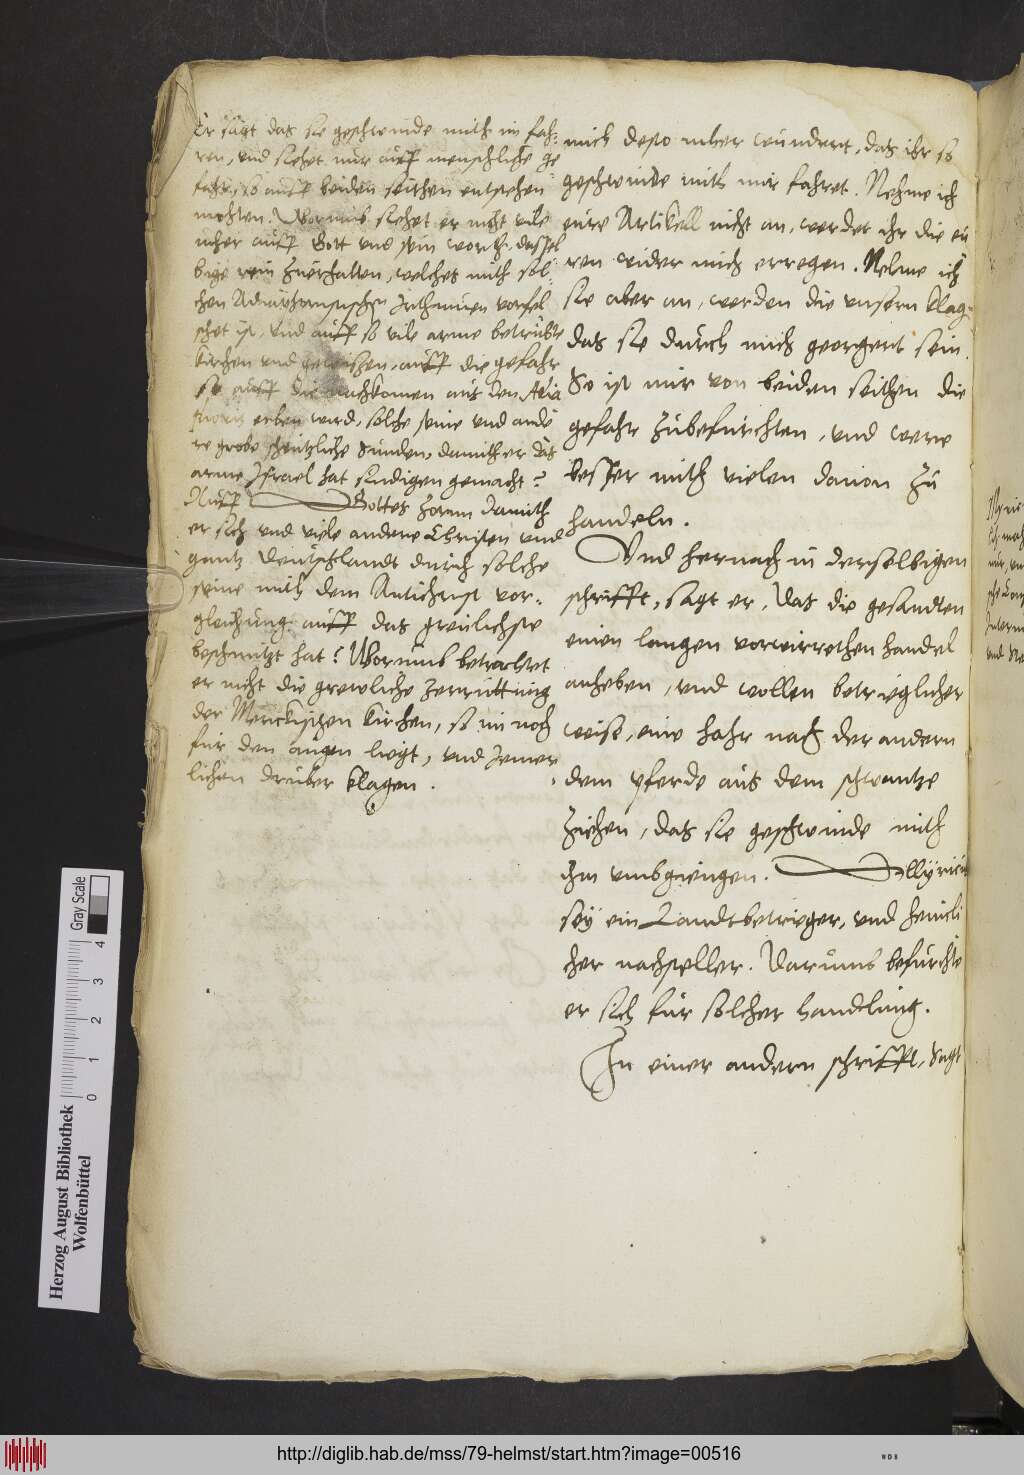 Er sagt das sie geschwinde mith im fah-
ren, und siehet nur auff menschliche ge
fahr, so auff beiden seithen entstehen
mochten. Worumb siehet er nicht vile
meher auff Gott und sein worth, dassel
bige rein zuerhalten, welches mith sol-
chen Adiaphoristischen Irthumen vorfel
schet ist, und auff so vile arme betrubte
kirchen und gewissen, auff die gefahr
so auff die nachkomen aus den Adia
phoris erben wird, solche seine und ande
re grobe scheutzliche sunden, damith er das
arme Israel hat sundigen gemacht?
Auff Gottes zorun damith
er sich und viele andere Christen und
gantz Deutschlandt durch solche
seine mith dem Antichrist vor-
gleichung auff das greulichste
beschmitzt hat? Worumb betrachtet
er nicht die grewliche zerruttung
der Merckischen kirchen, so im noch
fur den augen ligt, und jemer
lichen druber klagen.
mich desto meher wundert, das ihr so
geschwinde mith mir fahret. Nehme ich
eure Artikell nicht an, werdet ihr die eu
ren wider mich erregen. Nehme ich
sie aber an, werden die unsern klag-
das sie durch mich georgert sein.
So ist mir von beiden seithen die
gefahr zubefurchten, und were
besser mith vielen davon zu
handeln.
Und hernach in derselbigen
schrifft, sagt er, Das die gesandten
einen langen vorwirrethen handel
anheben, und wollen betrieglicher
weise, eine hahr nach der andern
dem pferde aus dem schwantze
ziehen, das sie geschwinde mith
ihm umbgiengen. Illyricus
sey ein Landtbetrieger, und heimli
cher nachsteller. Darumb befurchte
er sich fur solcher handlung.
In einer andern schrifft, sagt
Herzog August Bibliothek
Wolfenbüttel
0 1 2 3 4
Gray Scale
http://diglib.hab.de/mss/79-helmst/start.htm?image=00516